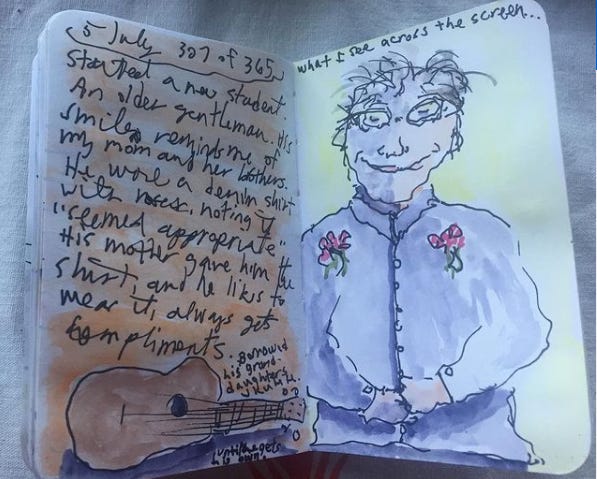 5 July 307 of 365
Started a new student.
An older gentleman. His
smile reminds me of
my mom and her brothers.
He wore a denim shirt
with roses, noting it
"seemed appropriate"
His mother gave him the
shirt, and he likes to
wear it, always gets
compliments.
. Borrowed
his grand-
daughters
until he gets
his own.
What I see across the screen...